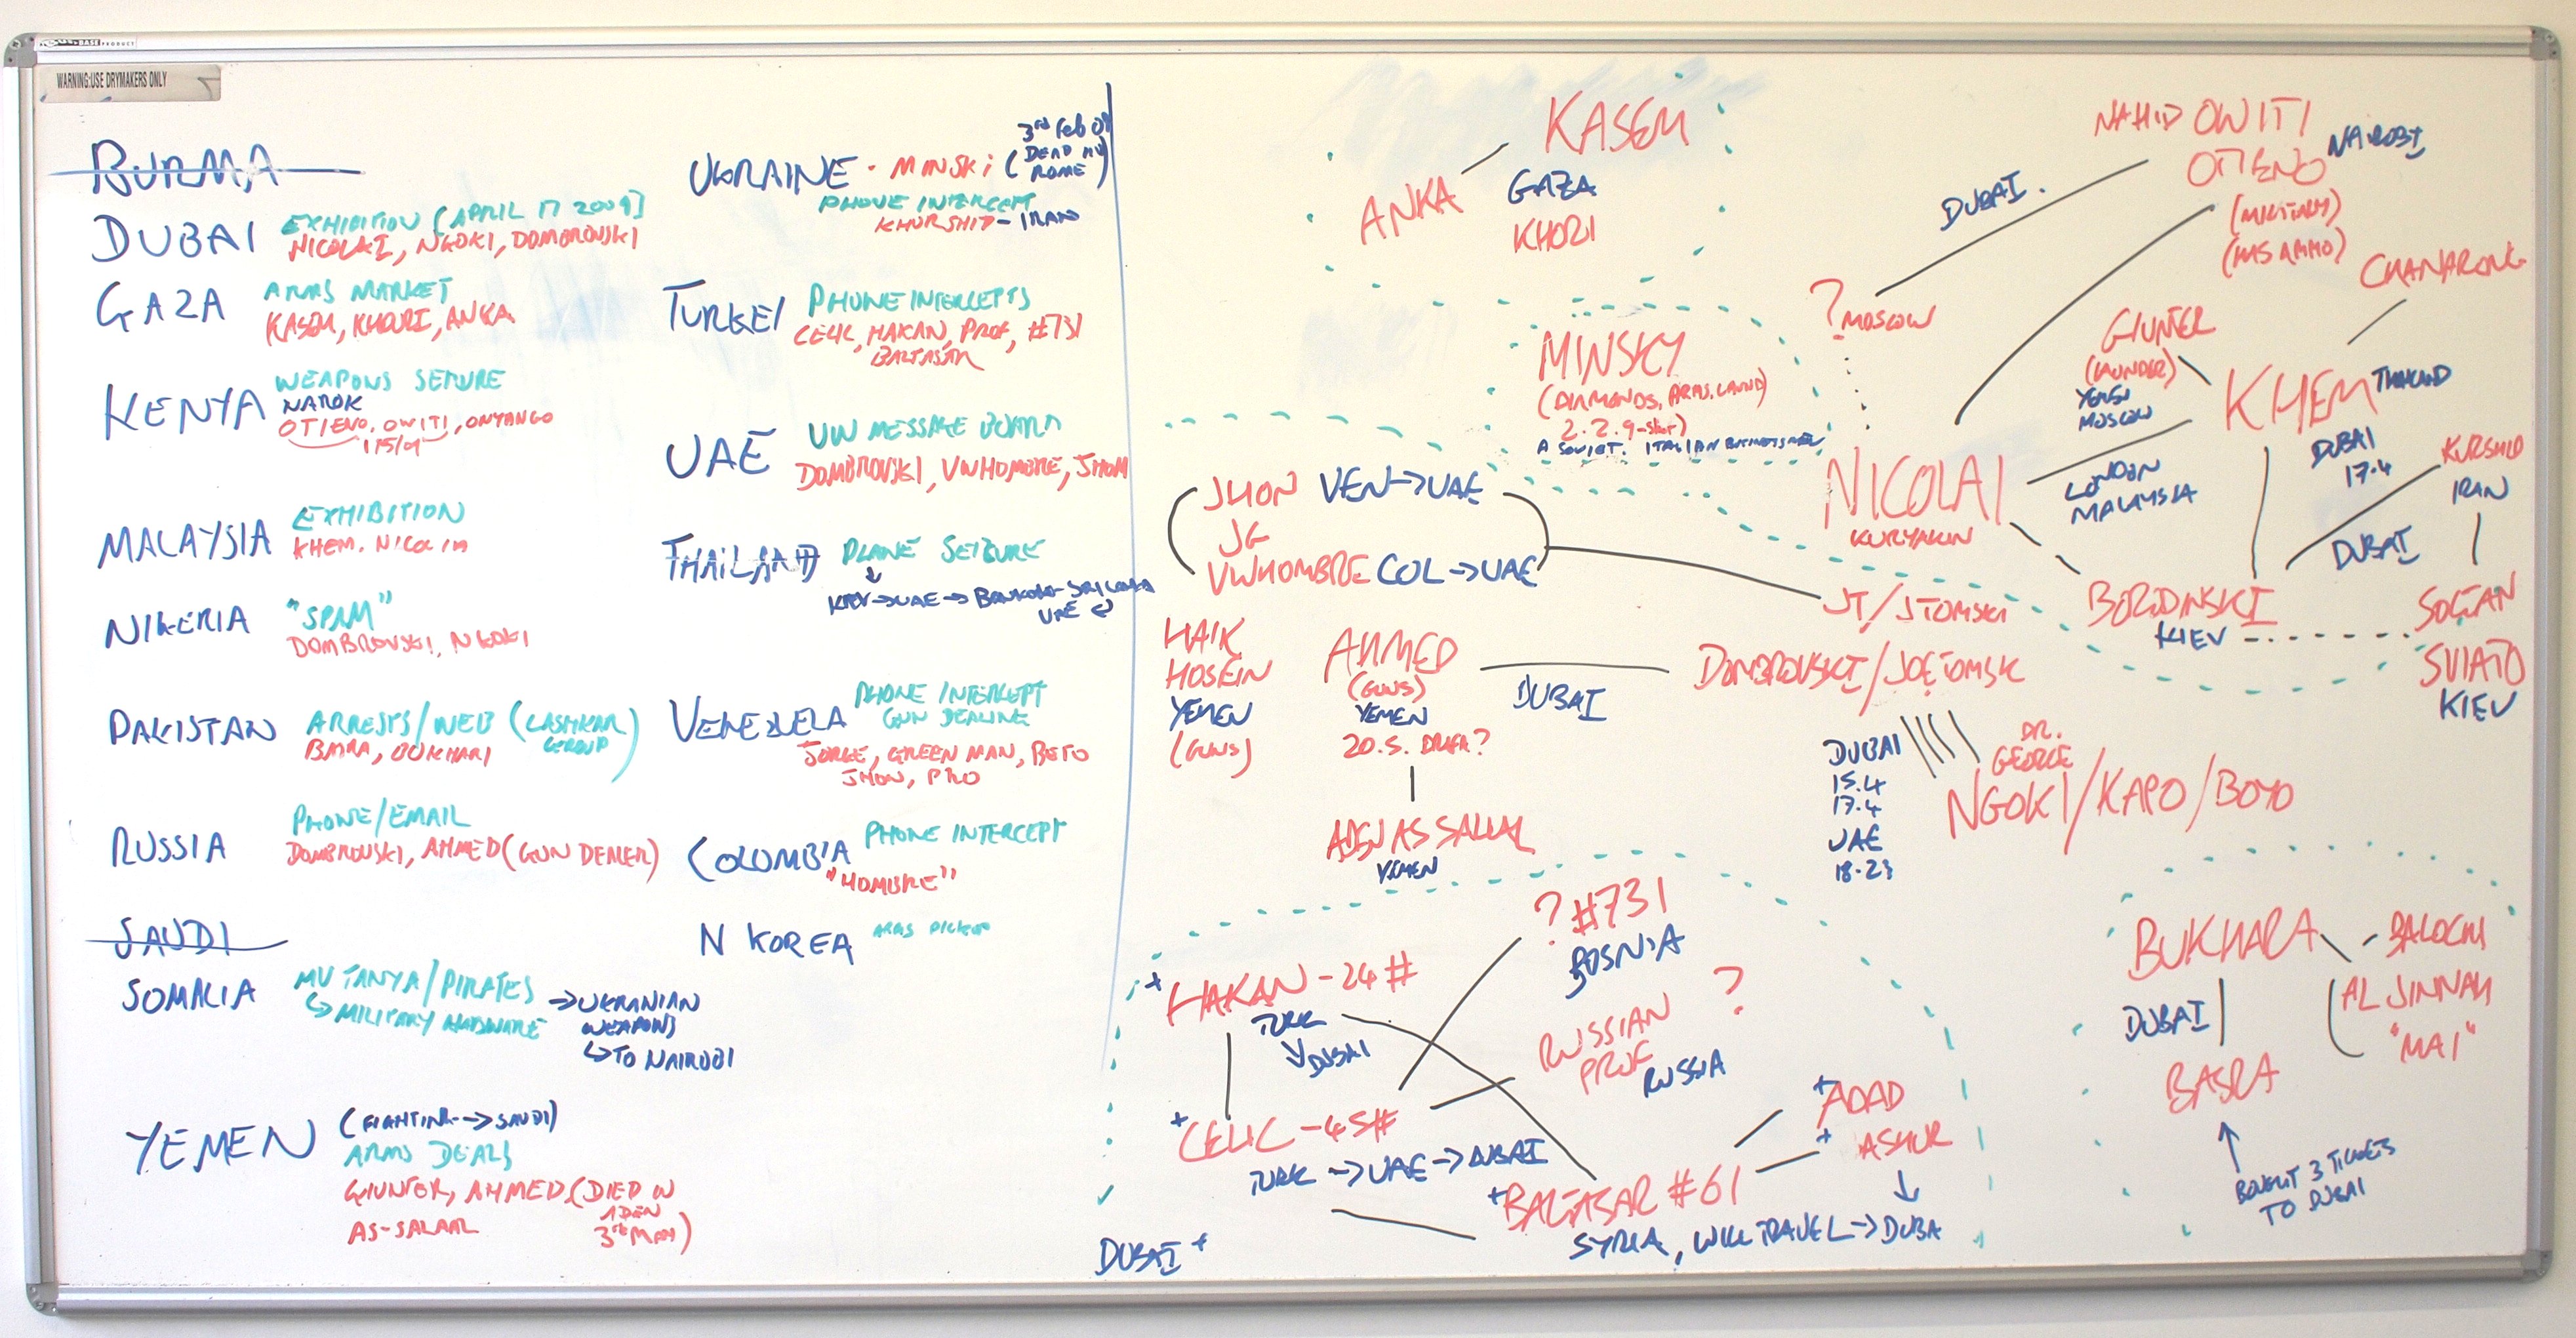 BASE PRODUCT
WARNING:USE DRYMAKERS ONLY
BURMA
DUBAI EXHIBITION (APRIL 17 2009]
NICOLAI, NGOKI, DOMBROVSKI
GAZA ARMS MARKET
KASEM, KHOURI, ANKA
KENYA WEAPONS SEIZURE
NAROK
OTIENO, OWITI, ONYANGO
MALAYSIA EXHIBITION
KHEM. NICOLAI
NIGERIA "SPAM"
DOMBROVSKI, NGOKI
PAKISTAN ARRESTS/WEB (LASHKAR
GROUP)
BASRA, BUKHARI
RUSSIA PHONE/EMAIL
DOMBROVSKI, AHMED (GUN DEALER)
SAUDI
SOMALIA MV TANYA/PIRATES
↳ MILITARY HARDWARE
→ UKRANIAN
WEAPONS
↳ TO NAIROBI
YEMEN (FIGHTING → SAUDI)
ARMS DEALS
GIUNTER, AHMED (DIED IN
ADEN
AS-SALAAL
UKRAINE - MINSKI (
3rd Feb 09
DEAD IN
ROME)
PHONE INTERCEPT
KHURSHID - IRAN
TURKEY PHONE INTERCEPTS
CELIK, HAKAN, PROF, #731
BALTASAR
UAE VW MESSAGE BOARD
DOMBROVSKI, VWHOMBRE, JHON
THAILAND PLANE SEIZURE
↓
KIEV → UAE → BANGKOK - SRI LANKA
UAE
VENEZUELA PHONE INTERCEPT
GUN DEALING
JORGE, GREEN MAN, BETO
JHON, PKO
COLUMBIA PHONE INTERCEPT
"HOMBRE"
N KOREA ARMS PICKUP
KASEM
ANKA
GAZA
KHORI
MINSKY
(DIAMONDS, ARMS, LAND)
2.2.9 - shot)
A SOVIET. ITALIAN BUSINESSMEN
NAHID OWITI
OTIENO NAIROBI
(MILITARY)
(HAS AMMO)
DUBAI.
? MOSCOW
CHANARONG
GIUNTER
(LAUNDER)
YEMEN
MOSCOW
KHEM THAILAND
DUBAI
17.4
NICOLAI
KURYAKIN
LONDON
MALAYSIA
KURSHID
IRAN
DUBAI
BORDINSKI
KIEV
SOLTAN
SVIATO
KIEV
JHON VEN → UAE
JG
VWHOMBRE COL → UAE
JT/JTOMSKI
HAIK
HOSEIN
YEMEN
(GUNS)
AHMED
(GUNS)
YEMEN
DUBAI
DOMBROVSKI/JOETOMSK
ADEN AS SALAAL
YEMEN
DUBAI
15.4
17.4
UAE
18-23
DR.
GEORGE
NGOKI/KAPO/BOYO
? #731
BOSNIA
+ HAKAN - 24#
TURK
↓ DUBAI
RUSSIAN ?
PROF
RUSSIA
+ CELIC - 45#
TURK → UAE → DUBAI
+ ADAD
+ ASHUR
↓
+ BALTASAR #61
SYRIA, WILL TRAVEL → DUBA
DUBAI +
BUKHARA
BALOCHI
AL JINNAH
"MAI"
DUBAI
BASRA
BOUGHT 3 TICKETS
TO DUBAI